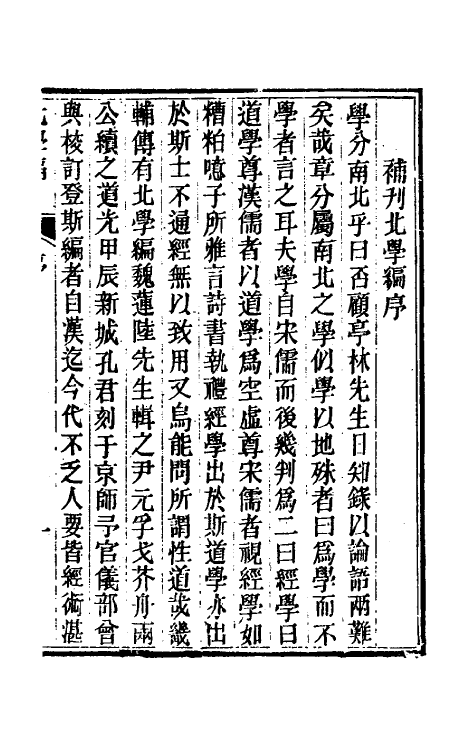 補刊北學編序
學分南北乎曰否顧亭林先生日知錄以論語兩難
矣哉章分屬南北之學似學以地殊者曰為學而不
學者言之耳夫學自宋儒而後幾判為二曰經學曰
道學尊漢儒者以道學為空虛尊宋儒者視經學如
糟粕噫子所雅言詩書執禮經學出於斯道學亦出
於斯士不通經無以致用又烏能問所謂性道哉畿
輔傳有北學編魏蓮陸先生輯之尹元孚戈芥舟兩
公續之道光甲辰新城孔君刻于京師予官儀部曾
與校訂登斯編者自漢迄今代不乏人要皆經術湛
北學編
序
一